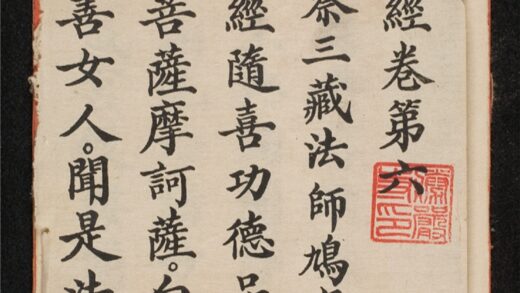 經卷第六
三藏法師鳩
經隨喜功德品
菩薩摩訶薩。白
善女人。聞是法